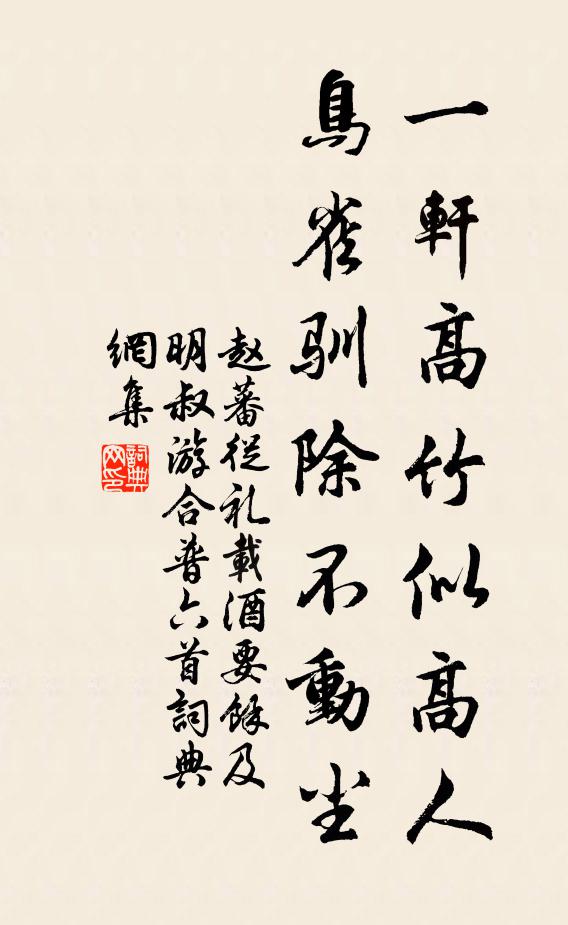 一軒高竹似高人
鳥雀馴除不動塵
赵蕃從礼載酒要餘及
明叔游合普六首詞典
網集
詞典
网印